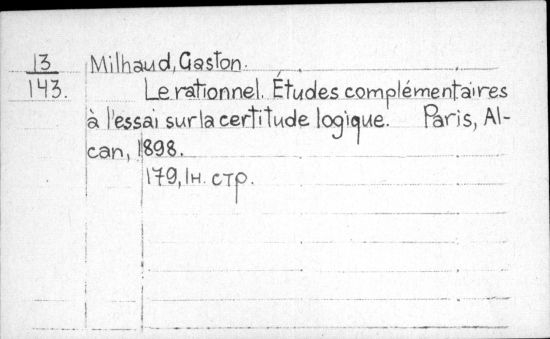 13 Milhaud, Gaston.
143. Le rationnel. Études complémentaires
à l'essai sur la certitude logique. Paris, Al-
can, 1898.
179, 1н. стр.